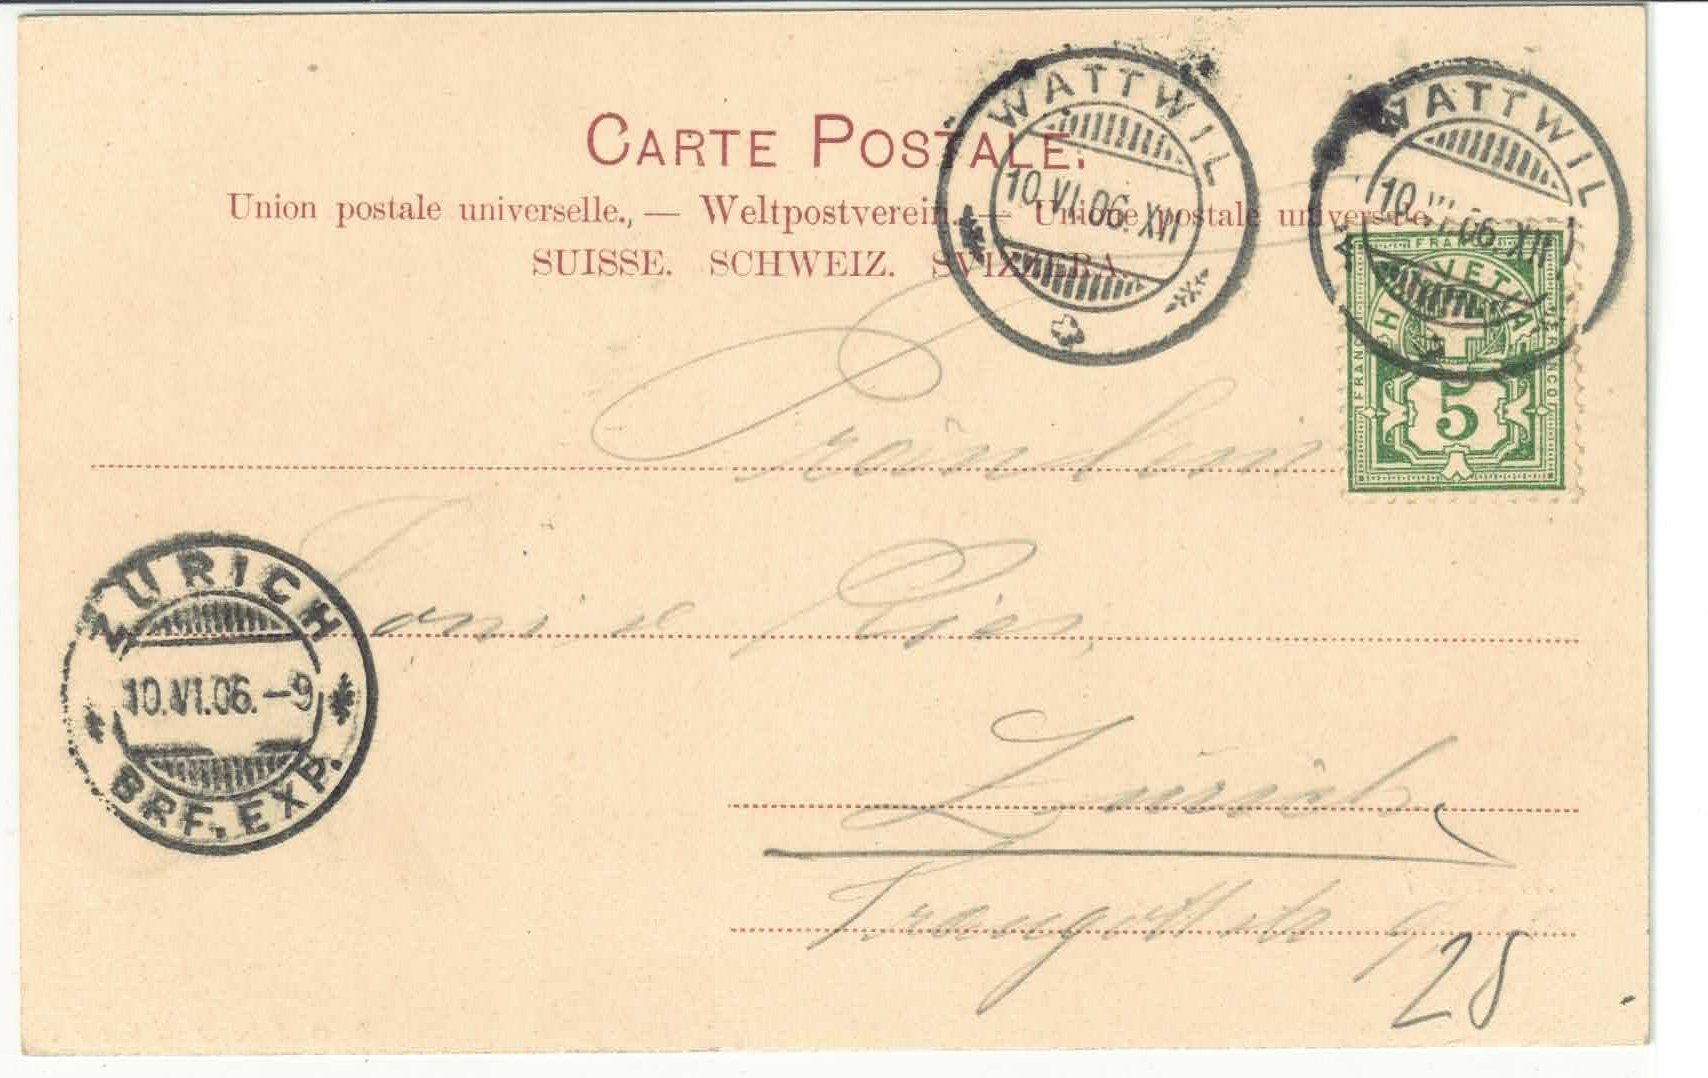 CARTE POSTALE.
Union postale universelle., — Weltpostverein. — Unione postale universale
SUISSE. SCHWEIZ. SVIZZERA.
WATTWIL
10.VI.06.XII
WATTWIL
10.VI.06.XII
FRANCO
HELVETIA
5
Fräulein
ZÜRICH
10.VI.06.-9
BRF. EXP.
Zürich
28